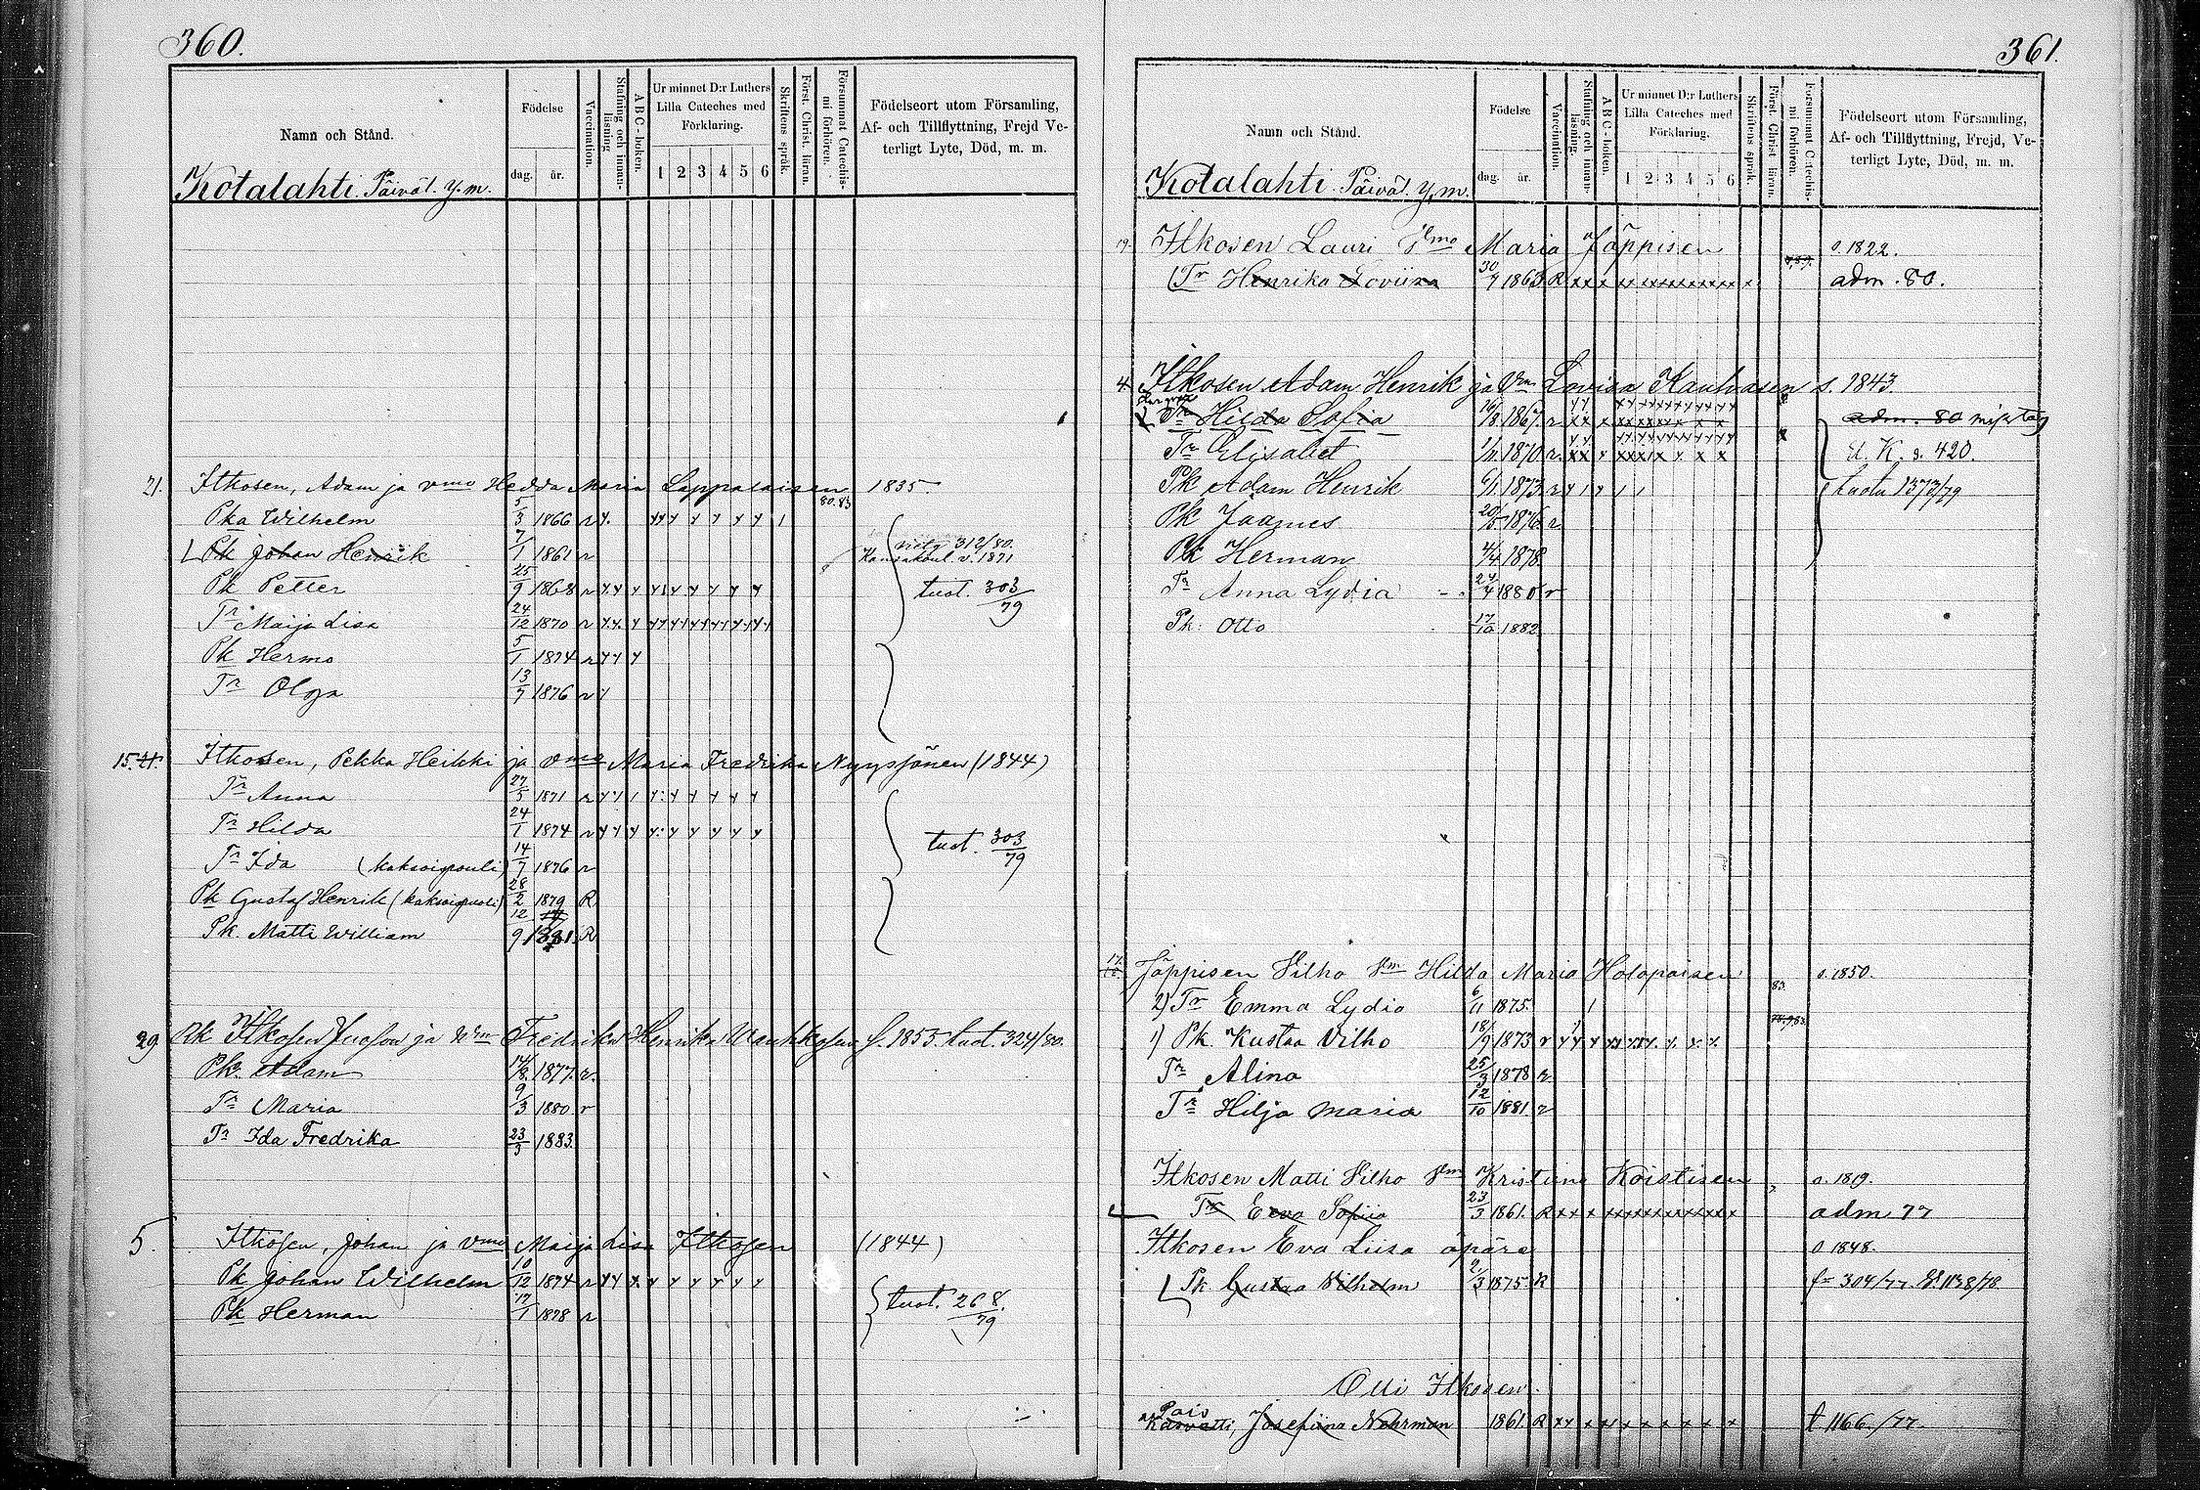 360.
Namn och Stånd.
Födelse
dag. år.
Vaccination.
Stafning och innan-läsning
ABC-boken.
Ur minnet D:r Luthers Lilla Cateches med Förklaring.
1 2 3 4 5 6
Skriftens språk.
Först. Christ. läran.
Försummat Catechis-mi förhören.
Födelseort utom Församling,
Af- och Tillflyttning, Frejd Ve-
terligt Lyte, Död, m. m.
Kotalahti. Päiväl. y. m.
21. Itkosen, Adam ja vmo Hedda Maria Lappalaisen 1835
80.83
Pka Wilhelm 5/3 1866 r
Pk Johan Henrik 7/1 1861 r 312/80.
Kansakoul. v. 1871
Pk Petter 25/9 1868 r tuot. 303/79
Tr Maija Lisa 24/12 1870 r
Pk Hermo 5/1 1874 r
Tr Olga 13/7 1876 r
15. 21. Itkosen, Pekka Heikki ja vmo Maria Fredrika Nyyssönen (1844)
Tr Anna 27/5 1871 r
Tr Hilda 24/1 1874 r tuot. 303/79
Tr Ida (kaksoispuoli) 14/7 1876 r
Pk Gustaf Henrik (kaksoispuoli) 28/2 1879 R
Pk. Matti William 12/9 1881. R
29 Pk Itkosen ja vmo Fredrika Henrika s. 1853 tuot. 324/80.
Pk. Adam 14/8 1877. r.
Tr Maria 9/3 1880 r
Tr Ida Fredrika 23/3 1883.
5. Itkosen, Johan ja vmo Maija Lisa Itkosen (1844)
Pk Johan Wilhelm 10/12 1874 r
Pk Herman 17/1 1878 r tuot. 268/79
361.
Namn och Stånd.
Födelse
dag. år.
Vaccination.
Stafning och innan-läsning.
ABC-boken.
Ur minnet D:r Luthers Lilla Cateches med Förklaring.
1 2 3 4 5 6
Skriftens språk.
Först. Christ läran.
Försummat Catechis-mi förhören.
Födelseort utom Församling,
Af- och Tillflyttning, Frejd, Ve-
terligt Lyte, Död, m. m.
Kotalahti. Päiväl. y. m.
19. Itkosen Lauri Vmo Maria Jäppisen s. 1822.
Tr Henrika Loviisa 30/7 1863 R adm. 80.
4. Itkosen Adam Henrik ja Vm Lovisa Kauhasen s. 1843.
Tr Hilda Sofia 16/8 1867. r adm. 80
Tr Elisabet 1/11 1870 r. U. K. s. 420.
Pk Adam Henrik 6/1 1873 r tuotu 1373/79
Pk Jaames 20/5 1876 r
Pk Herman 4/4 1878.
Tr Anna Lydia 24/4 1880 r
Pk. Otto 17/10 1882
17/18. Jäppisen Vilho Vm Hilda Maria Holopaisen s. 1850.
83.
2) Tr Emma Lydia 6/11 1875.
1) Pk. Kustaa Vilho 18/9 1873 r
Tr Alina 25/3 1878 r
Tr Hilja Maria 12/10 1881. r
Itkosen Matti Vilho Vm Kristiina Koistisen s. 1819.
Tr Eeva Sofiia 23/3 1861. R adm 77
Itkosen Eva Liisa äpäre s 1848.
Pk. Gustaa Vilhelm 2/3 1875 R 304/77. 1138/78
Olli Itkosen.
Pais
Kasvatti, Josefiina Nohrman 1861. R t 1166/77.